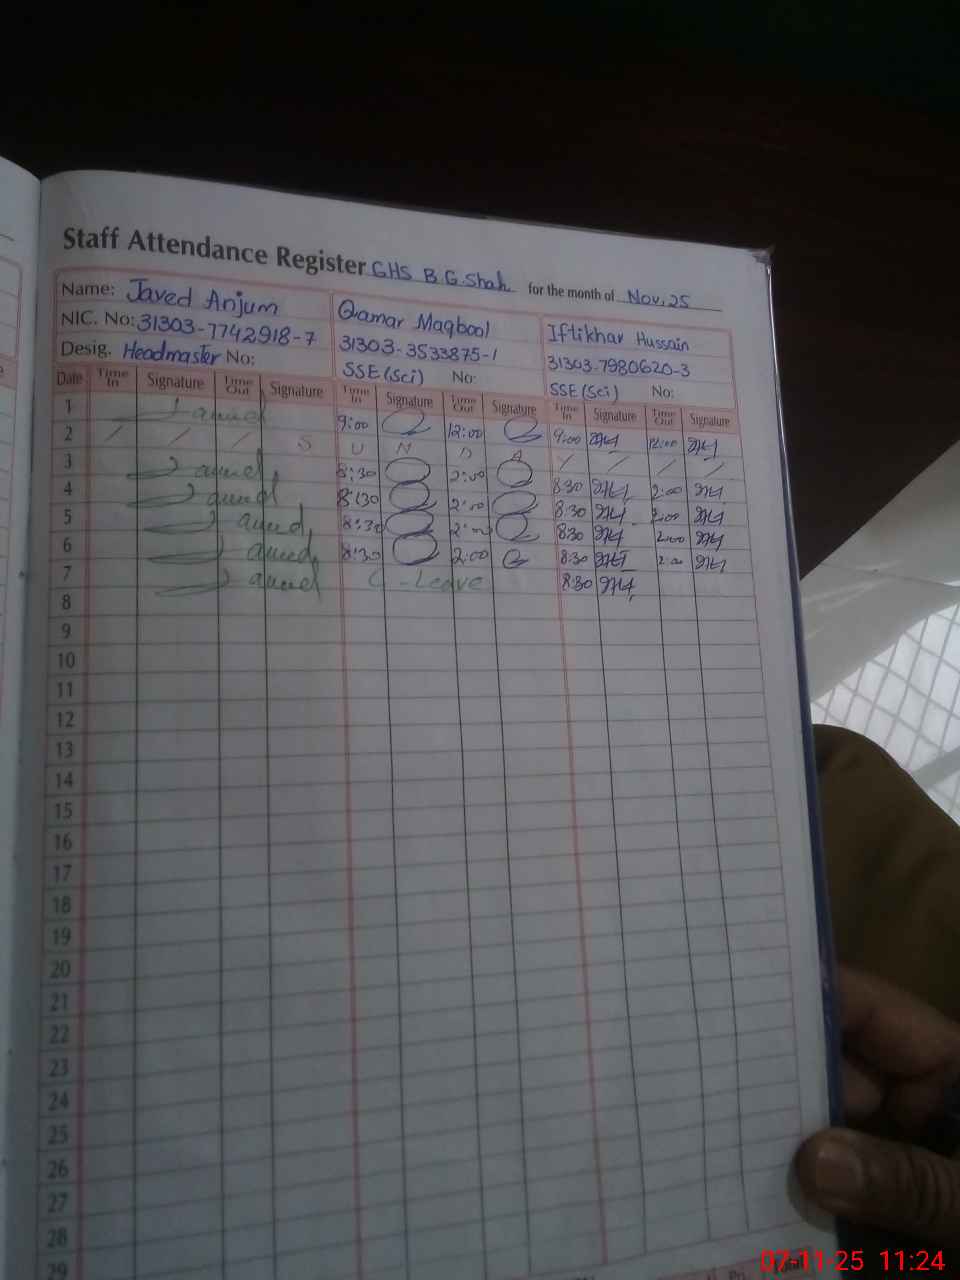 Staff Attendance Register GHS B.G.Shah for the month of Nov.25
Name: Javed Anjum Qamar Maqbool Iftikhar Hussain
NIC. No: 31303-7742918-7 31303-3533875-1 31303-7980620-3
Desig. Headmaster No: SSE (Sci) No: SSE (Sci) No:
Date Time In Signature Time Out Signature Time In Signature Time Out Signature Time In Signature Time Out Signature
1 9:00 12:00 9:00 12:00
2 / / / S U N D A / / / /
3 8:30 2:00 8:30 2:00
4 8:30 2:00 8:30 2:00
5 8:30 2:00 8:30 2:00
6 8:30 2:00 8:30 2:00
7 C-Leave 8:30
8
9
10
11
12
13
14
15
16
17
18
19
20
21
22
23
24
25
26
27
28
29
07-11-25 11:24